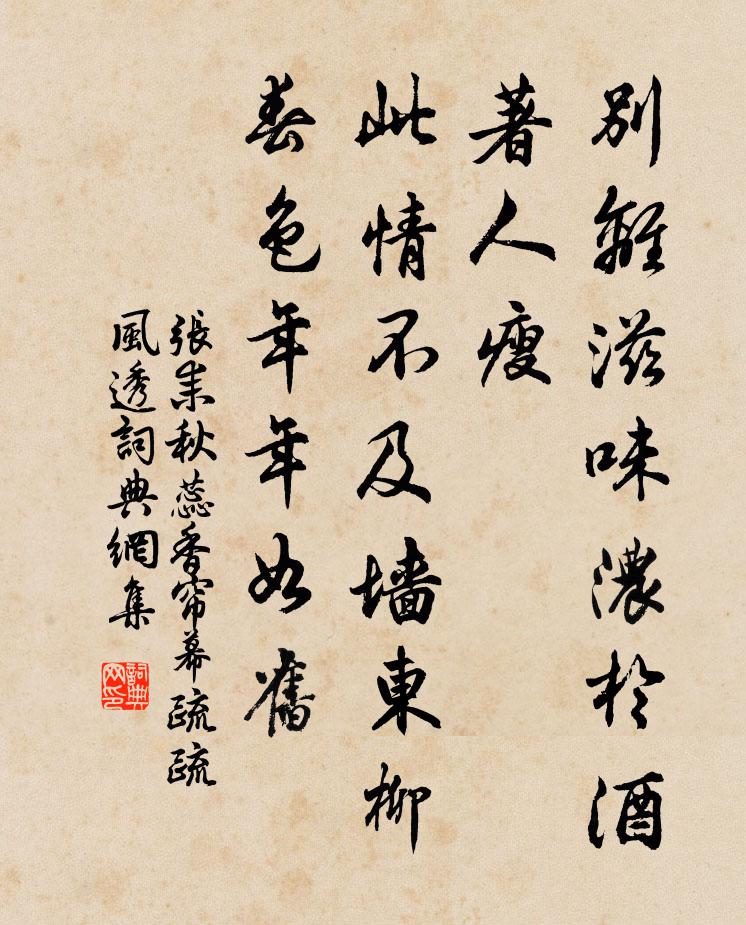 別離滋味濃於酒
著人瘦
此情不及墻東柳
春色年年如舊
張耒秋蕊香帘幕疏疏
風透詞典網集
詞典网印